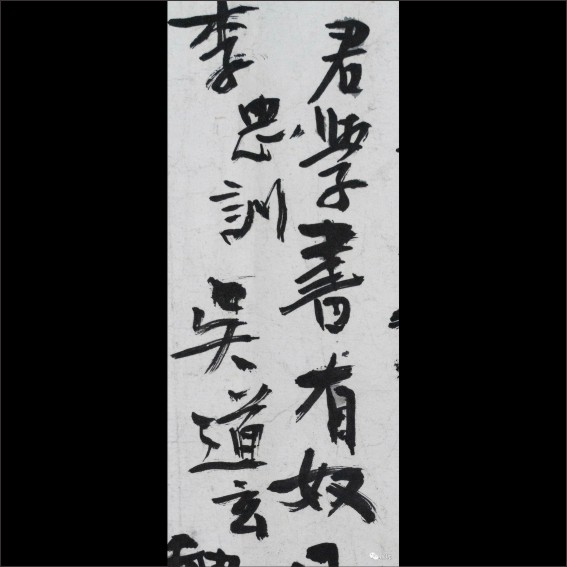 君學書有奴
李思訓吳道玄